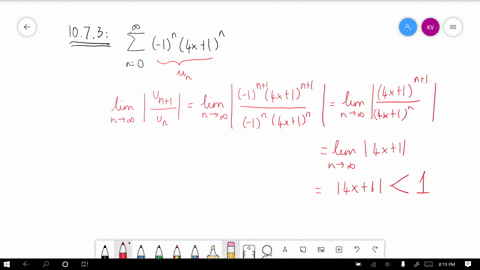 10.7.3: ∞ ∑ n=0 (-1)^n (4x+1)^n
u_n
lim n→∞ |u_{n+1}/u_n| = lim n→∞ |(-1)^{n+1} (4x+1)^{n+1} / (-1)^n (4x+1)^n| = lim n→∞ |(4x+1)^{n+1} / (4x+1)^n|
= lim n→∞ |4x+1|
= |4x+1| < 1
KY
8:19 PM